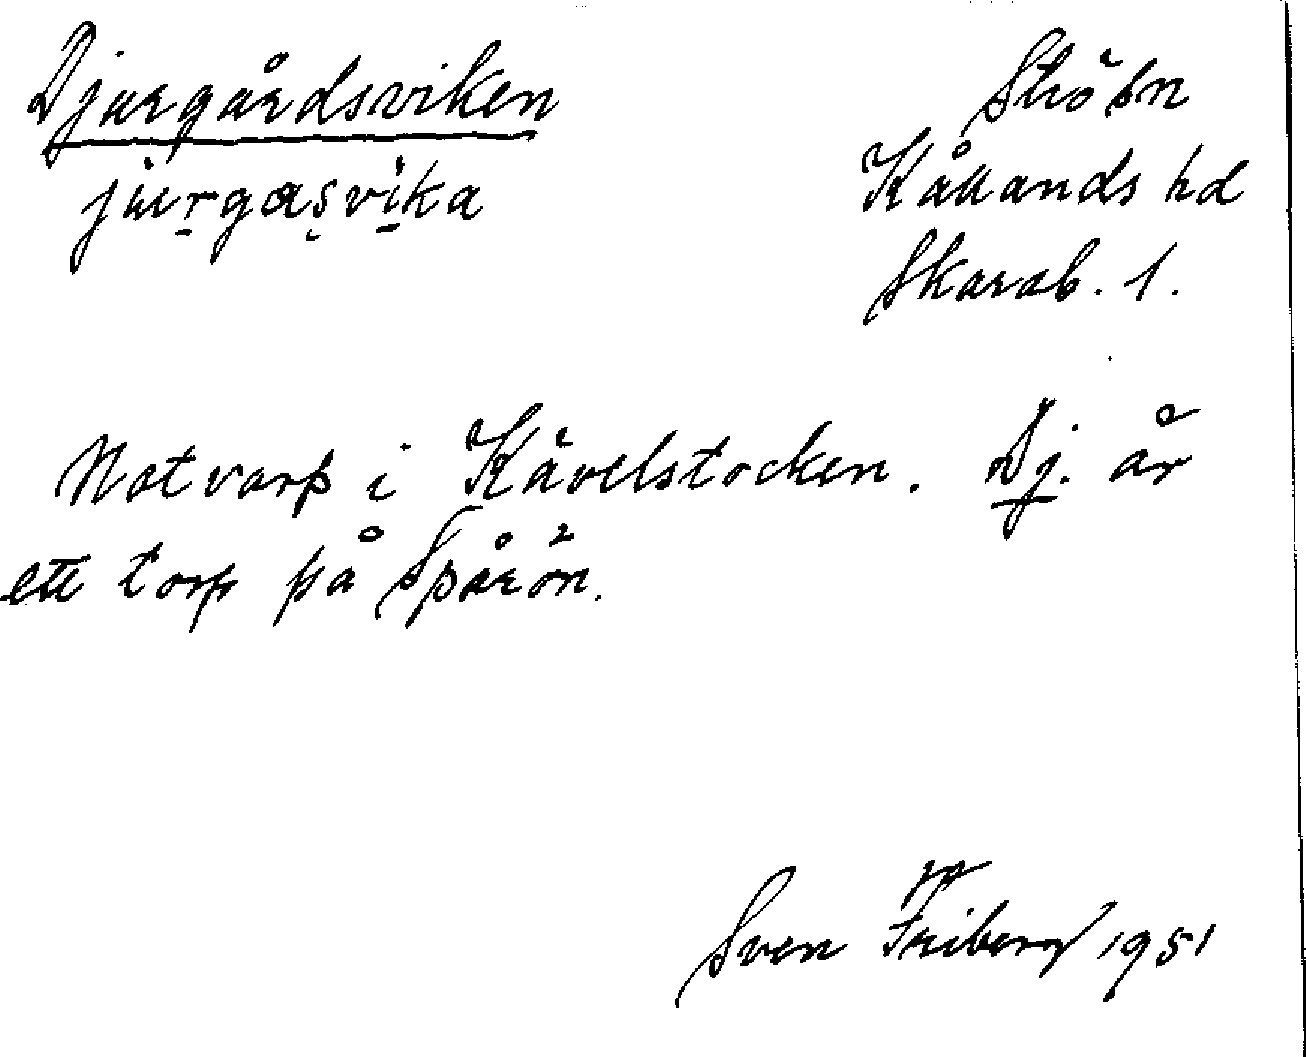 Djurgårdsviken
Strö sn
jurgasvika
Kållands hd
Skarab. l.
Notvarp i Kävelstocken. Dj. är
ett torp på Spårön.
Sven Friberg 1951